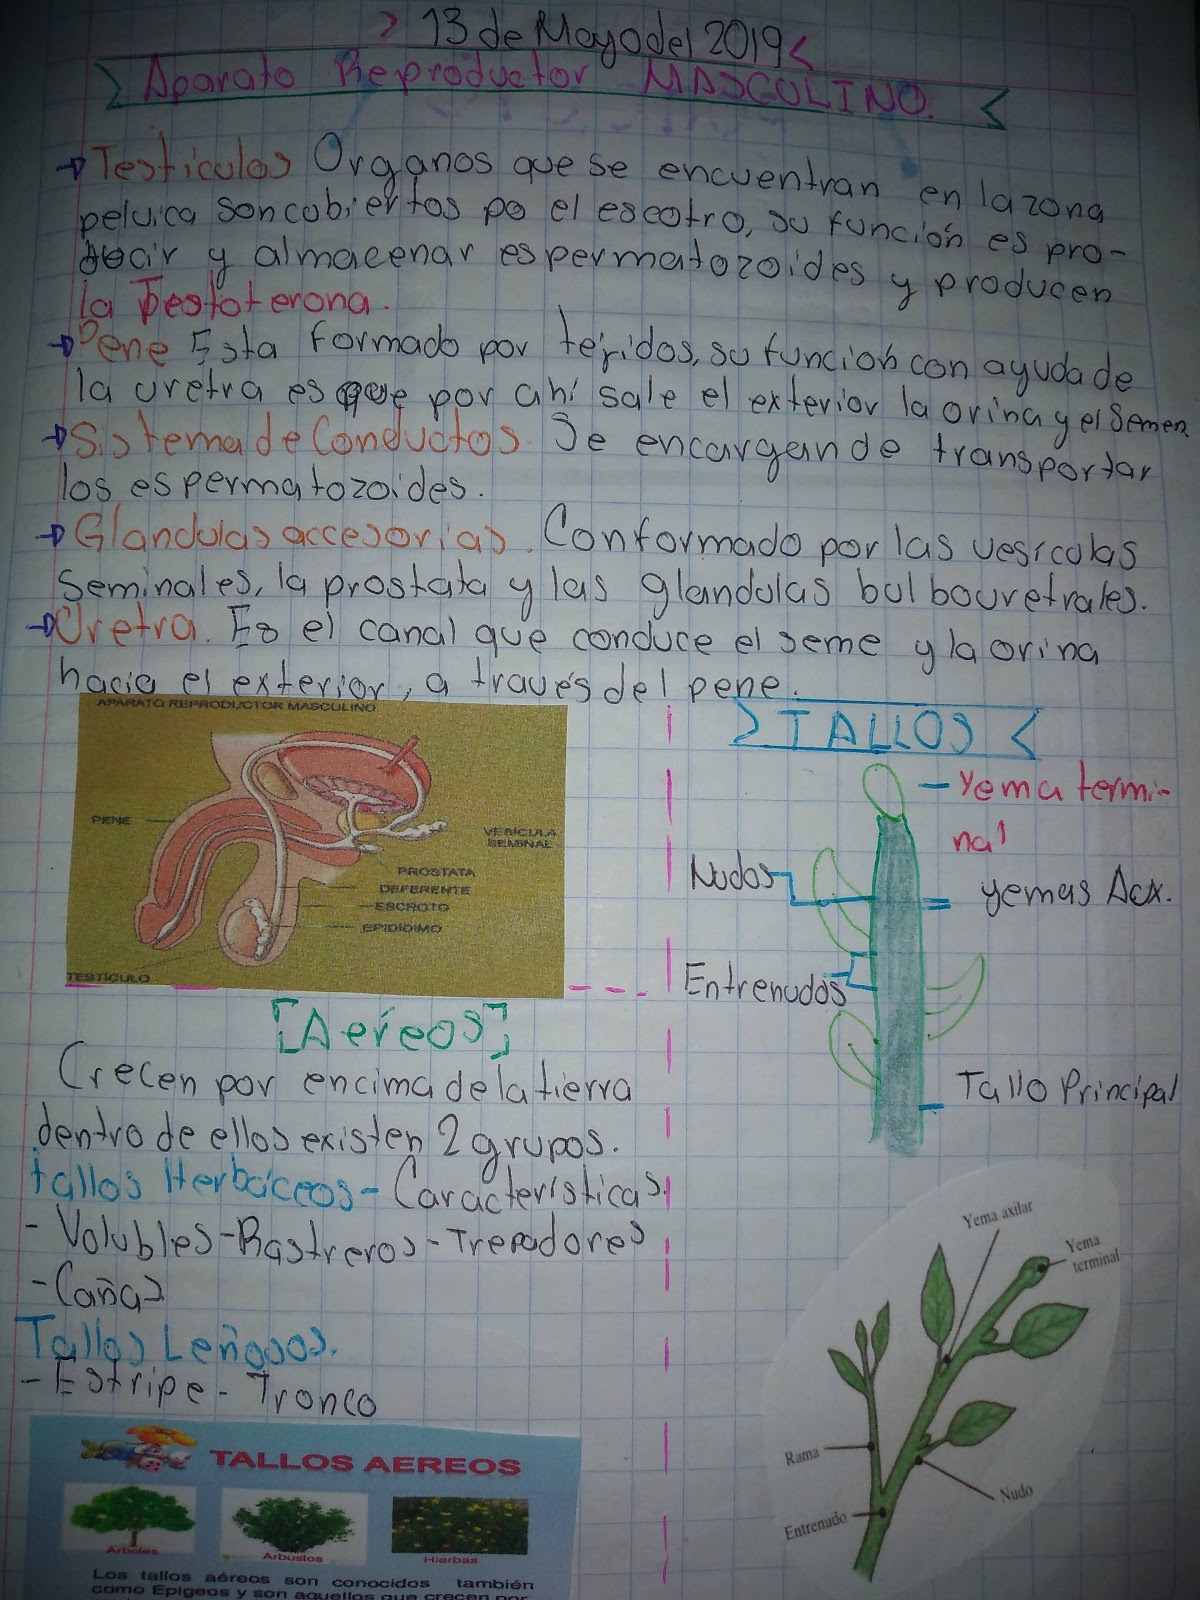 13 de Mayo del 2019
Aparato Reproductor MASCULINO.
Testiculos Organos que se encuentran en la zona
pelvica son cubiertos po el escotro, su función es pro-
ducir y almacenar espermatozoides y producen
la Testoterona.
Pene Esta formado por tejidos, su función con ayuda de
la uretra es que por ahí sale el exterior la orina y el Semen.
Sistema de Conductos. Se encargan de transportar
los espermatozoides.
Glandulas accesorias. Conformado por las vesicolas
Seminales, la prostata y las glandulas bulbouretrales.
Uretra. Es el canal que conduce el seme y la orina
hacia el exterior, a través del pene.
APARATO REPRODUCTOR MASCULINO
PENE
VESÍCULA
SEMINAL
PROSTATA
DEFERENTE
ESCROTO
EPIDIDIMO
TESTÍCULO
TALLOS
Yema termi-
nal
Nudos
yemas Acx.
Entrenudos
Tallo Principal
[Aéreos]
Crecen por encima de la tierra
dentro de ellos existen 2 grupos.
tallos Herbáceos - Características.
- Volubles - Rastreros - Trepadores
- Cañas
Tallos Leñosos.
- Estripe - Tronco
Yema axilar
Yema
terminal
Rama
Nudo
Entrenudo
TALLOS AEREOS
Arboles
Arbustos
Hierbas
Los tallos aéreos son conocidos también
como Epígeos y son aquellos que crecen por